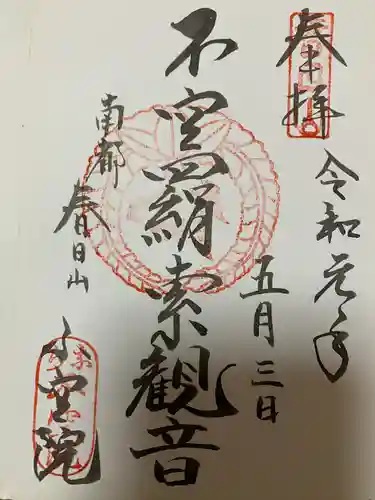 奉拝
令和元年
五月三日
不空羂索観音
南都
春日山
不空院